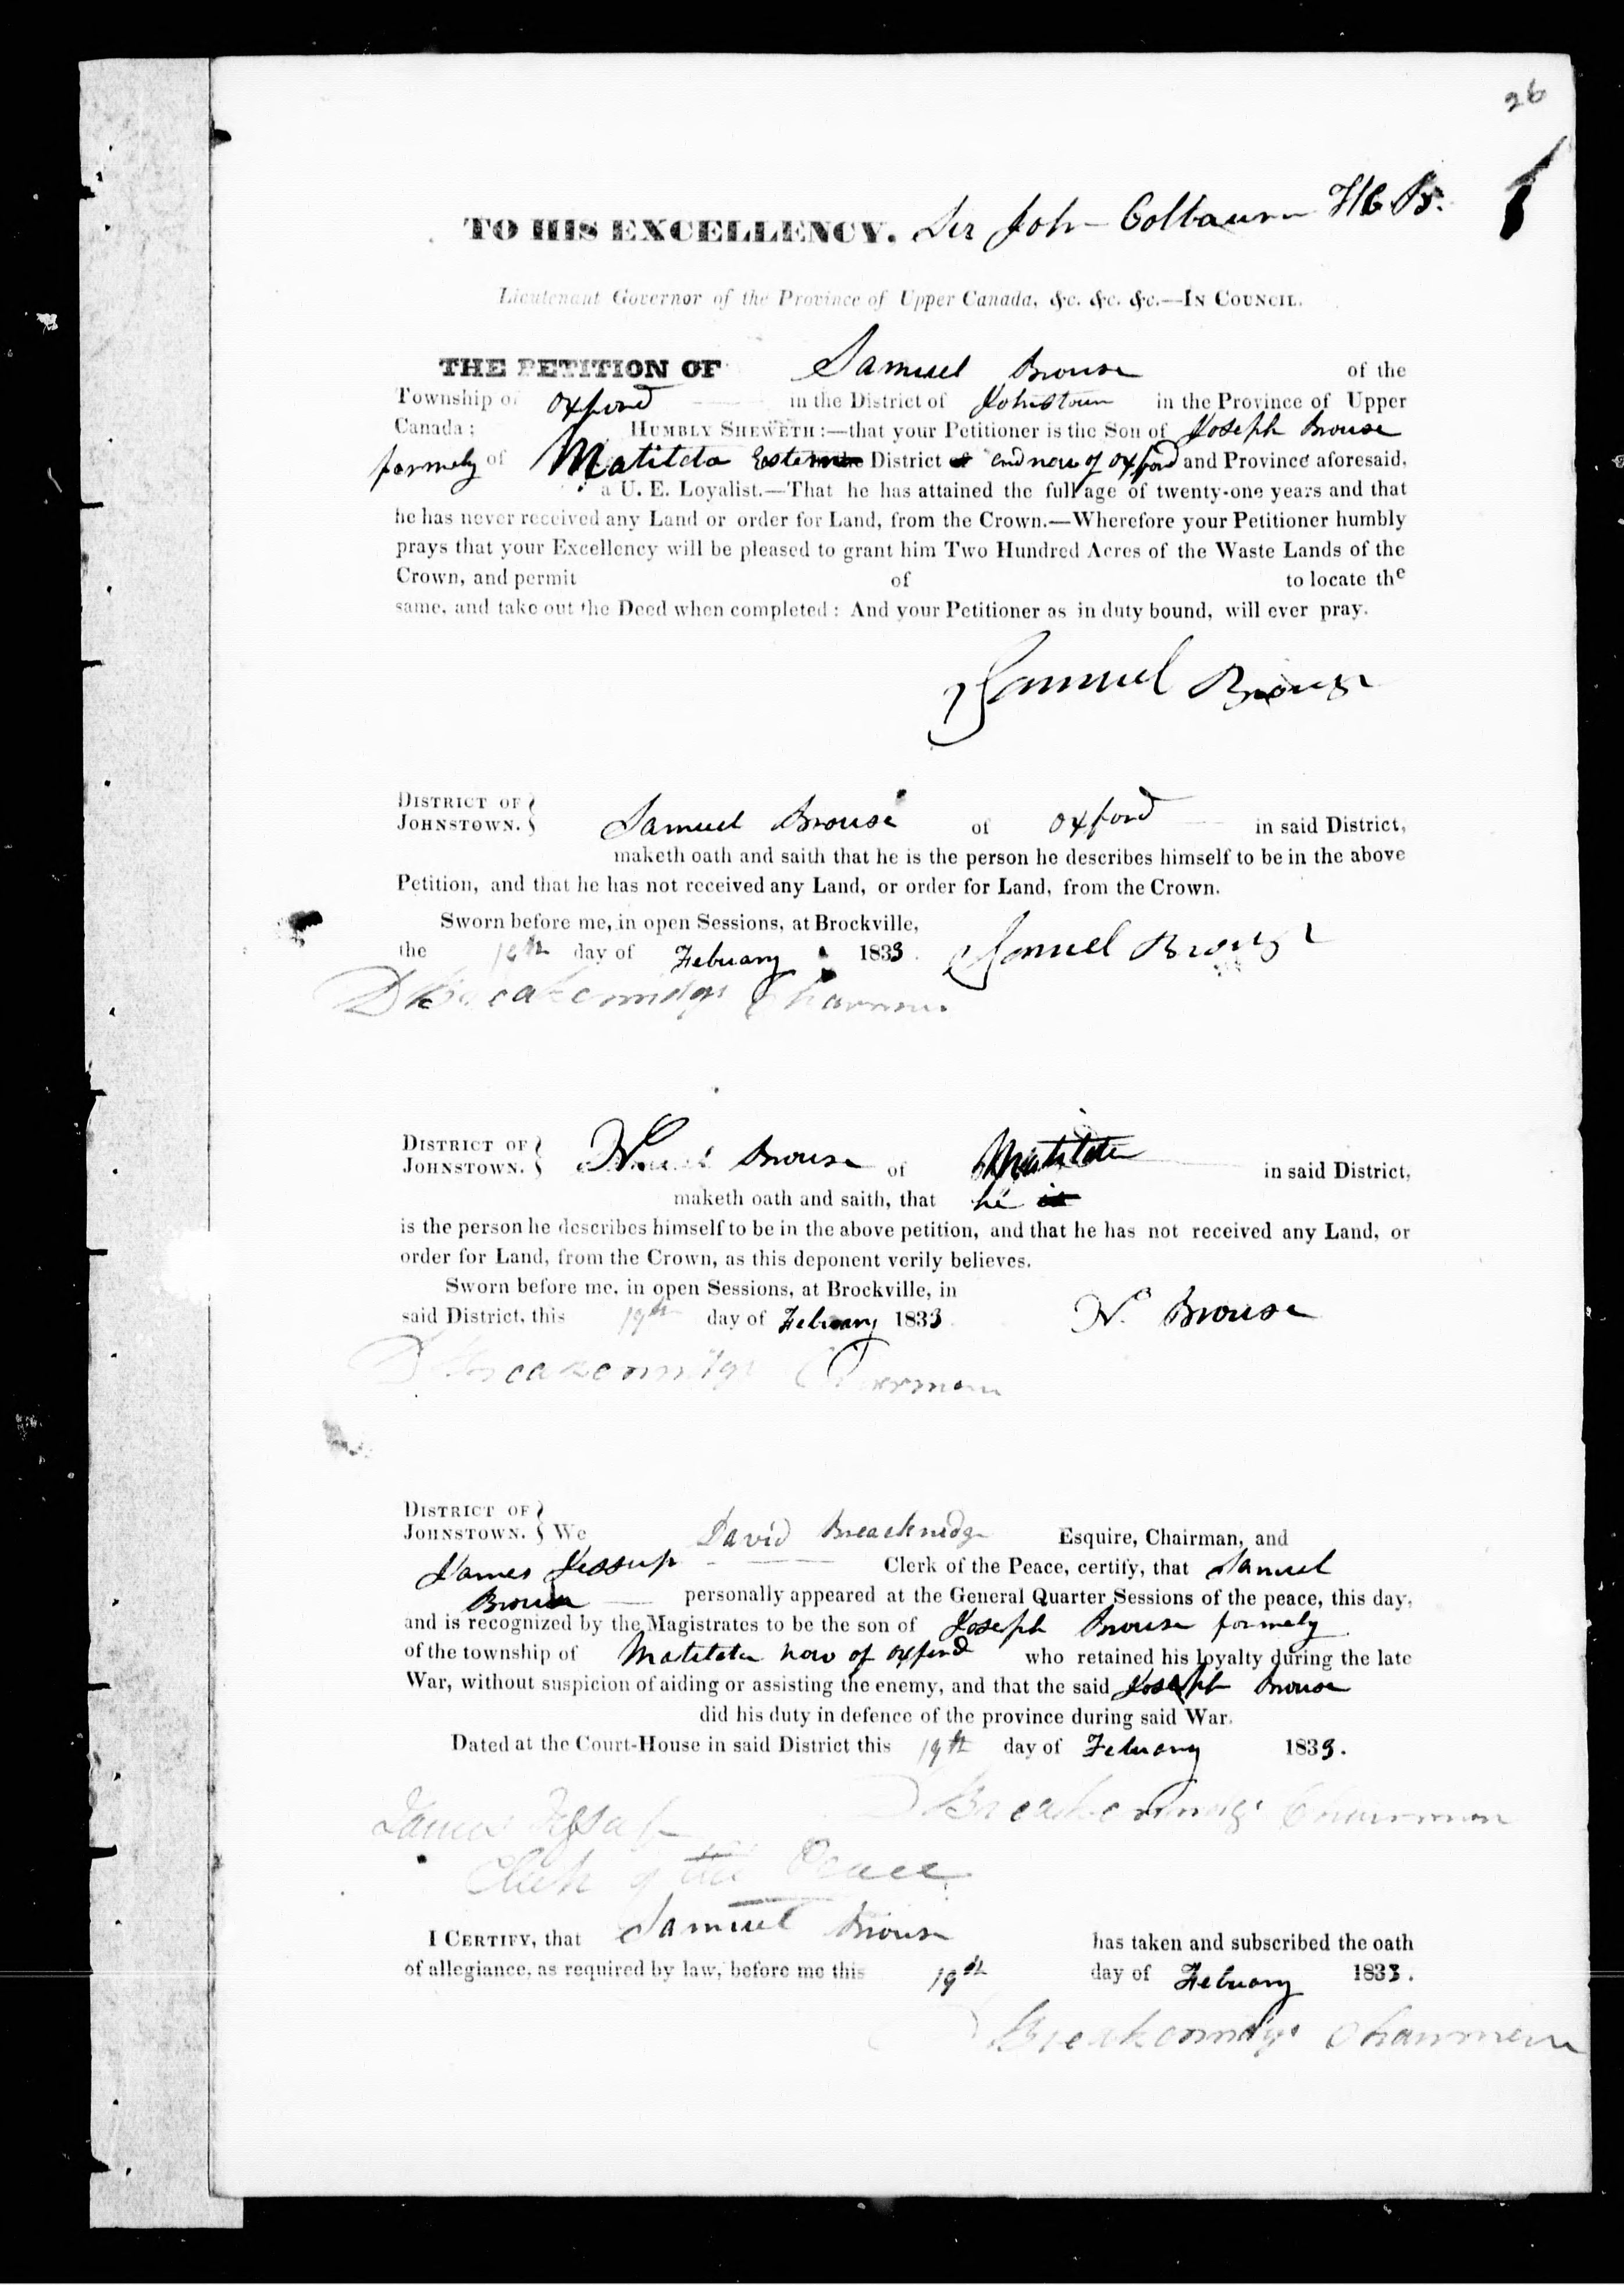 26
TO HIS EXCELLENCY. Sir John Colbaurn K C B.
Lieutenant Governor of the Province of Upper Canada, &c. &c. &c.—IN COUNCIL.
THE PETITION OF Samuel Brouse of the
Township of Oxford in the District of Johnstown in the Province of Upper
Canada; HUMBLY SHEWETH:—that your Petitioner is the Son of Joseph Brouse
formely of Matilda Eastern District and now of Oxford and Province aforesaid,
a U. E. Loyalist.—That he has attained the full age of twenty-one years and that
he has never received any Land or order for Land, from the Crown.—Wherefore your Petitioner humbly
prays that your Excellency will be pleased to grant him Two Hundred Acres of the Waste Lands of the
Crown, and permit of to locate the
same, and take out the Deed when completed: And your Petitioner as in duty bound, will ever pray.
Samuel Brouse
DISTRICT OF
JOHNSTOWN. } Samuel Brouse of Oxford in said District,
maketh oath and saith that he is the person he describes himself to be in the above
Petition, and that he has not received any Land, or order for Land, from the Crown.
Sworn before me, in open Sessions, at Brockville,
the 19th day of Febuary 1833. Samuel Brouse
D Breakenridge Chairman
DISTRICT OF
JOHNSTOWN. } Brouse of Matilda in said District,
maketh oath and saith, that he is
is the person he describes himself to be in the above petition, and that he has not received any Land, or
order for Land, from the Crown, as this deponent verily believes.
Sworn before me, in open Sessions, at Brockville, in
said District, this 19th day of Febuary 1833. Brouse
D Breakenridge Chairman
DISTRICT OF
JOHNSTOWN. } We David Breacknidge Esquire, Chairman, and
James Jessup Clerk of the Peace, certify, that Samuel
Brouse personally appeared at the General Quarter Sessions of the peace, this day,
and is recognized by the Magistrates to be the son of Joseph Brouse formely
of the township of Matilda now of Oxford who retained his loyalty during the late
War, without suspicion of aiding or assisting the enemy, and that the said Joseph Brouse
did his duty in defence of the province during said War.
Dated at the Court-House in said District this 19th day of Febuary 1833.
D Breakenridge Chairman
James Jessup
Clerk of the Peace
I CERTIFY, that Samuel Brouse has taken and subscribed the oath
of allegiance, as required by law, before me this 19th day of Febuary 1833.
D Breakenridge Chairman